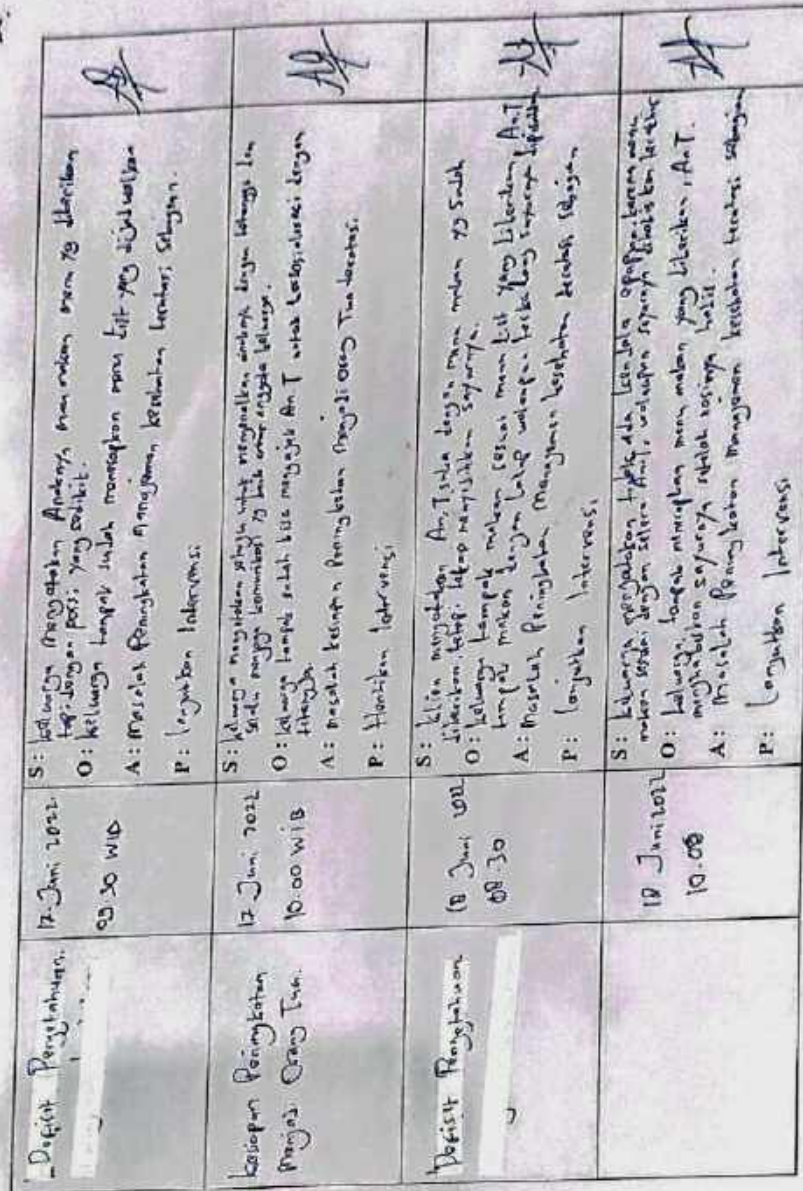 Defisit Pengetahuan.
17 Juni 2022
09.30 WIB
S: keluarga mengatakan Anaknya mau makan menu yg diberikan
tapi dengan porsi yang sedikit.
O: keluarga tampak sudah menerapkan menu list yang dijadwalkan
A: Masalah Peningkatan Manajemen kesehatan teratasi sebagian.
P: lanjutkan Intervensi
Kesiapan Peningkatan
Menjadi Orang Tua.
17 Juni 2022
10.00 WIB
S: keluarga mengatakan untuk anaknya dengan dan
selalu menjaga komunikasi yg baik anggota keluarga.
O: keluarga tampak sudah bisa mengajak An.T untuk bersosialisasi dengan
tetangga
A: Masalah kesiapan Peningkatan Menjadi Orang Tua teratasi.
P: Hentikan Intervensi
Defisit Pengetahuan
18 Juni 2022
08.30
S: klien mengatakan An.T suka dengan menu makan yg sudah
diberikan, tetapi menyisihkan sayurnya.
O: keluarga tampak makan sesuai menu list yang diberikan, An.T
tampak makan dengan lahap walaupun sayurnya
A: Masalah Peningkatan Manajemen kesehatan teratasi sebagian
P: lanjutkan Intervensi
18 Juni 2022
10.08
S: keluarga mengatakan tidak ada kendala apapun karena menu
makan sesuai dengan selera Anak, walaupun sayurnya
O: keluarga tampak menerapkan menu makan yang diberikan, An.T.
menghabiskan sayurnya setelah nasinya habis.
A: Masalah Peningkatan Manajemen kesehatan teratasi sebagian
P: Lanjutkan Intervensi